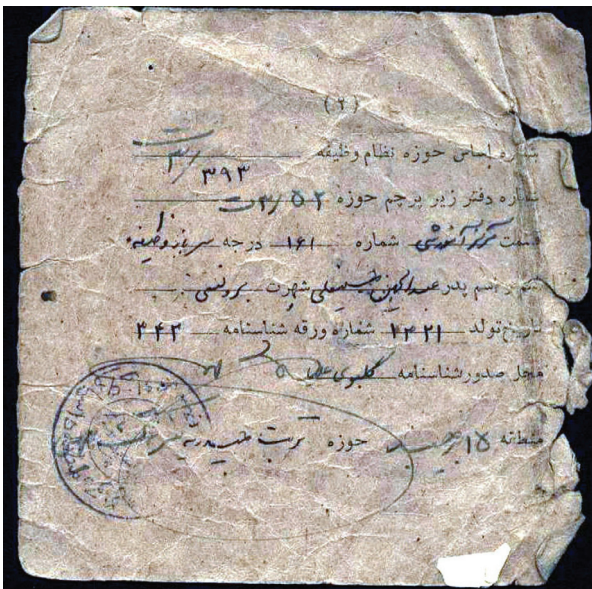 (۲)
شماره اساس حوزه نظام وظیفه ۳/۳۹۳
شماره دفتر زیر پرچم حوزه ۳/۵۲
قسمت مرکز آموزشی شماره ۱۶۱ درجه سرباز وظیفه
اسم و اسم پدر عبدالحسین شهرت برونسی
تاریخ تولد ۱۳۲۱ شماره ورقه شناسنامه ۴۴۳
محل صدور شناسنامه گلبوی
منطقه ۱۵ حوزه تربت حیدریه